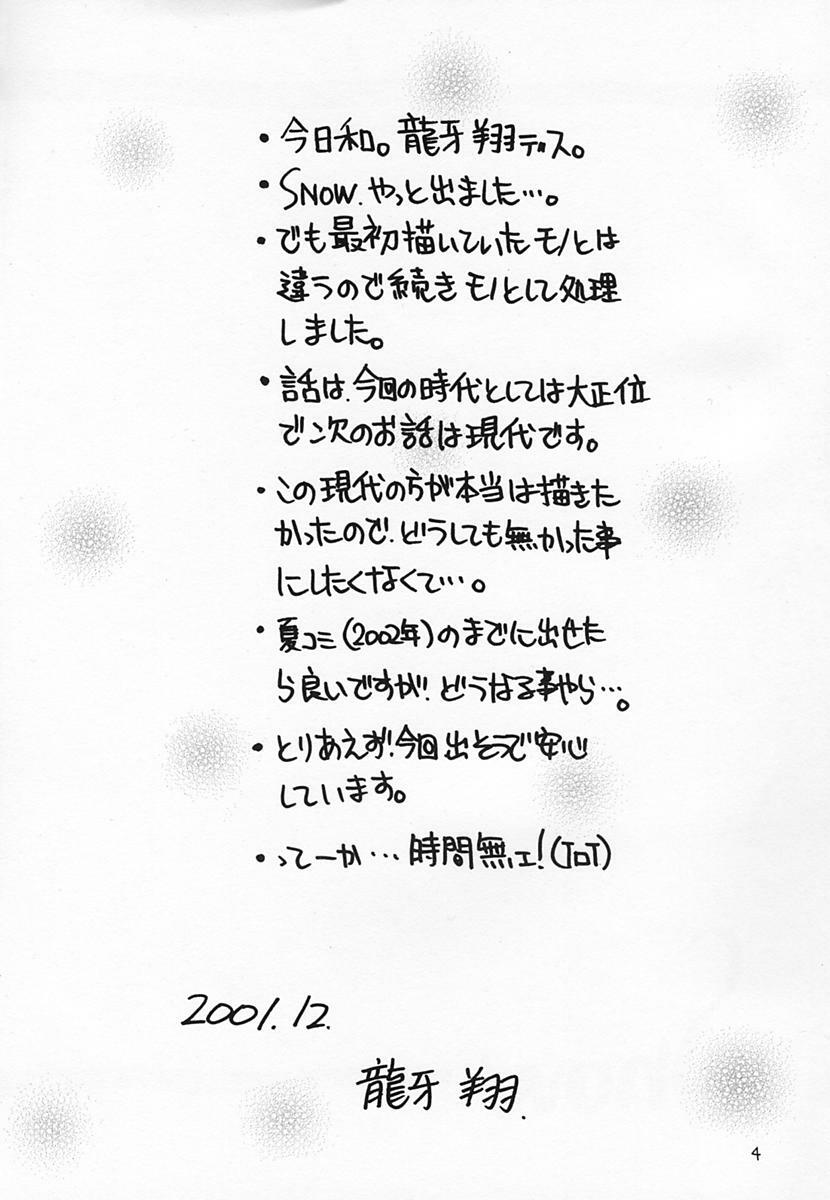 ・今日和。龍牙翔デス。
・SNOW.やっと出ました…。
・でも最初描いていたモノとは
違うので続きモノとして処理
しました。
・話は、今回の時代としては大正位
で次のお話は現代です。
・この現代の方が本当は描きた
かったので、どうしても無かった事
にしたくなくて…。
・夏コミ(2002年)のまでに出せた
ら良いですが!どうなる事やら…。
・とりあえず!今回出そうで安心
しています。
・ってーか…時間無ェ!(ToT)
2001.12.
龍牙 翔.
4